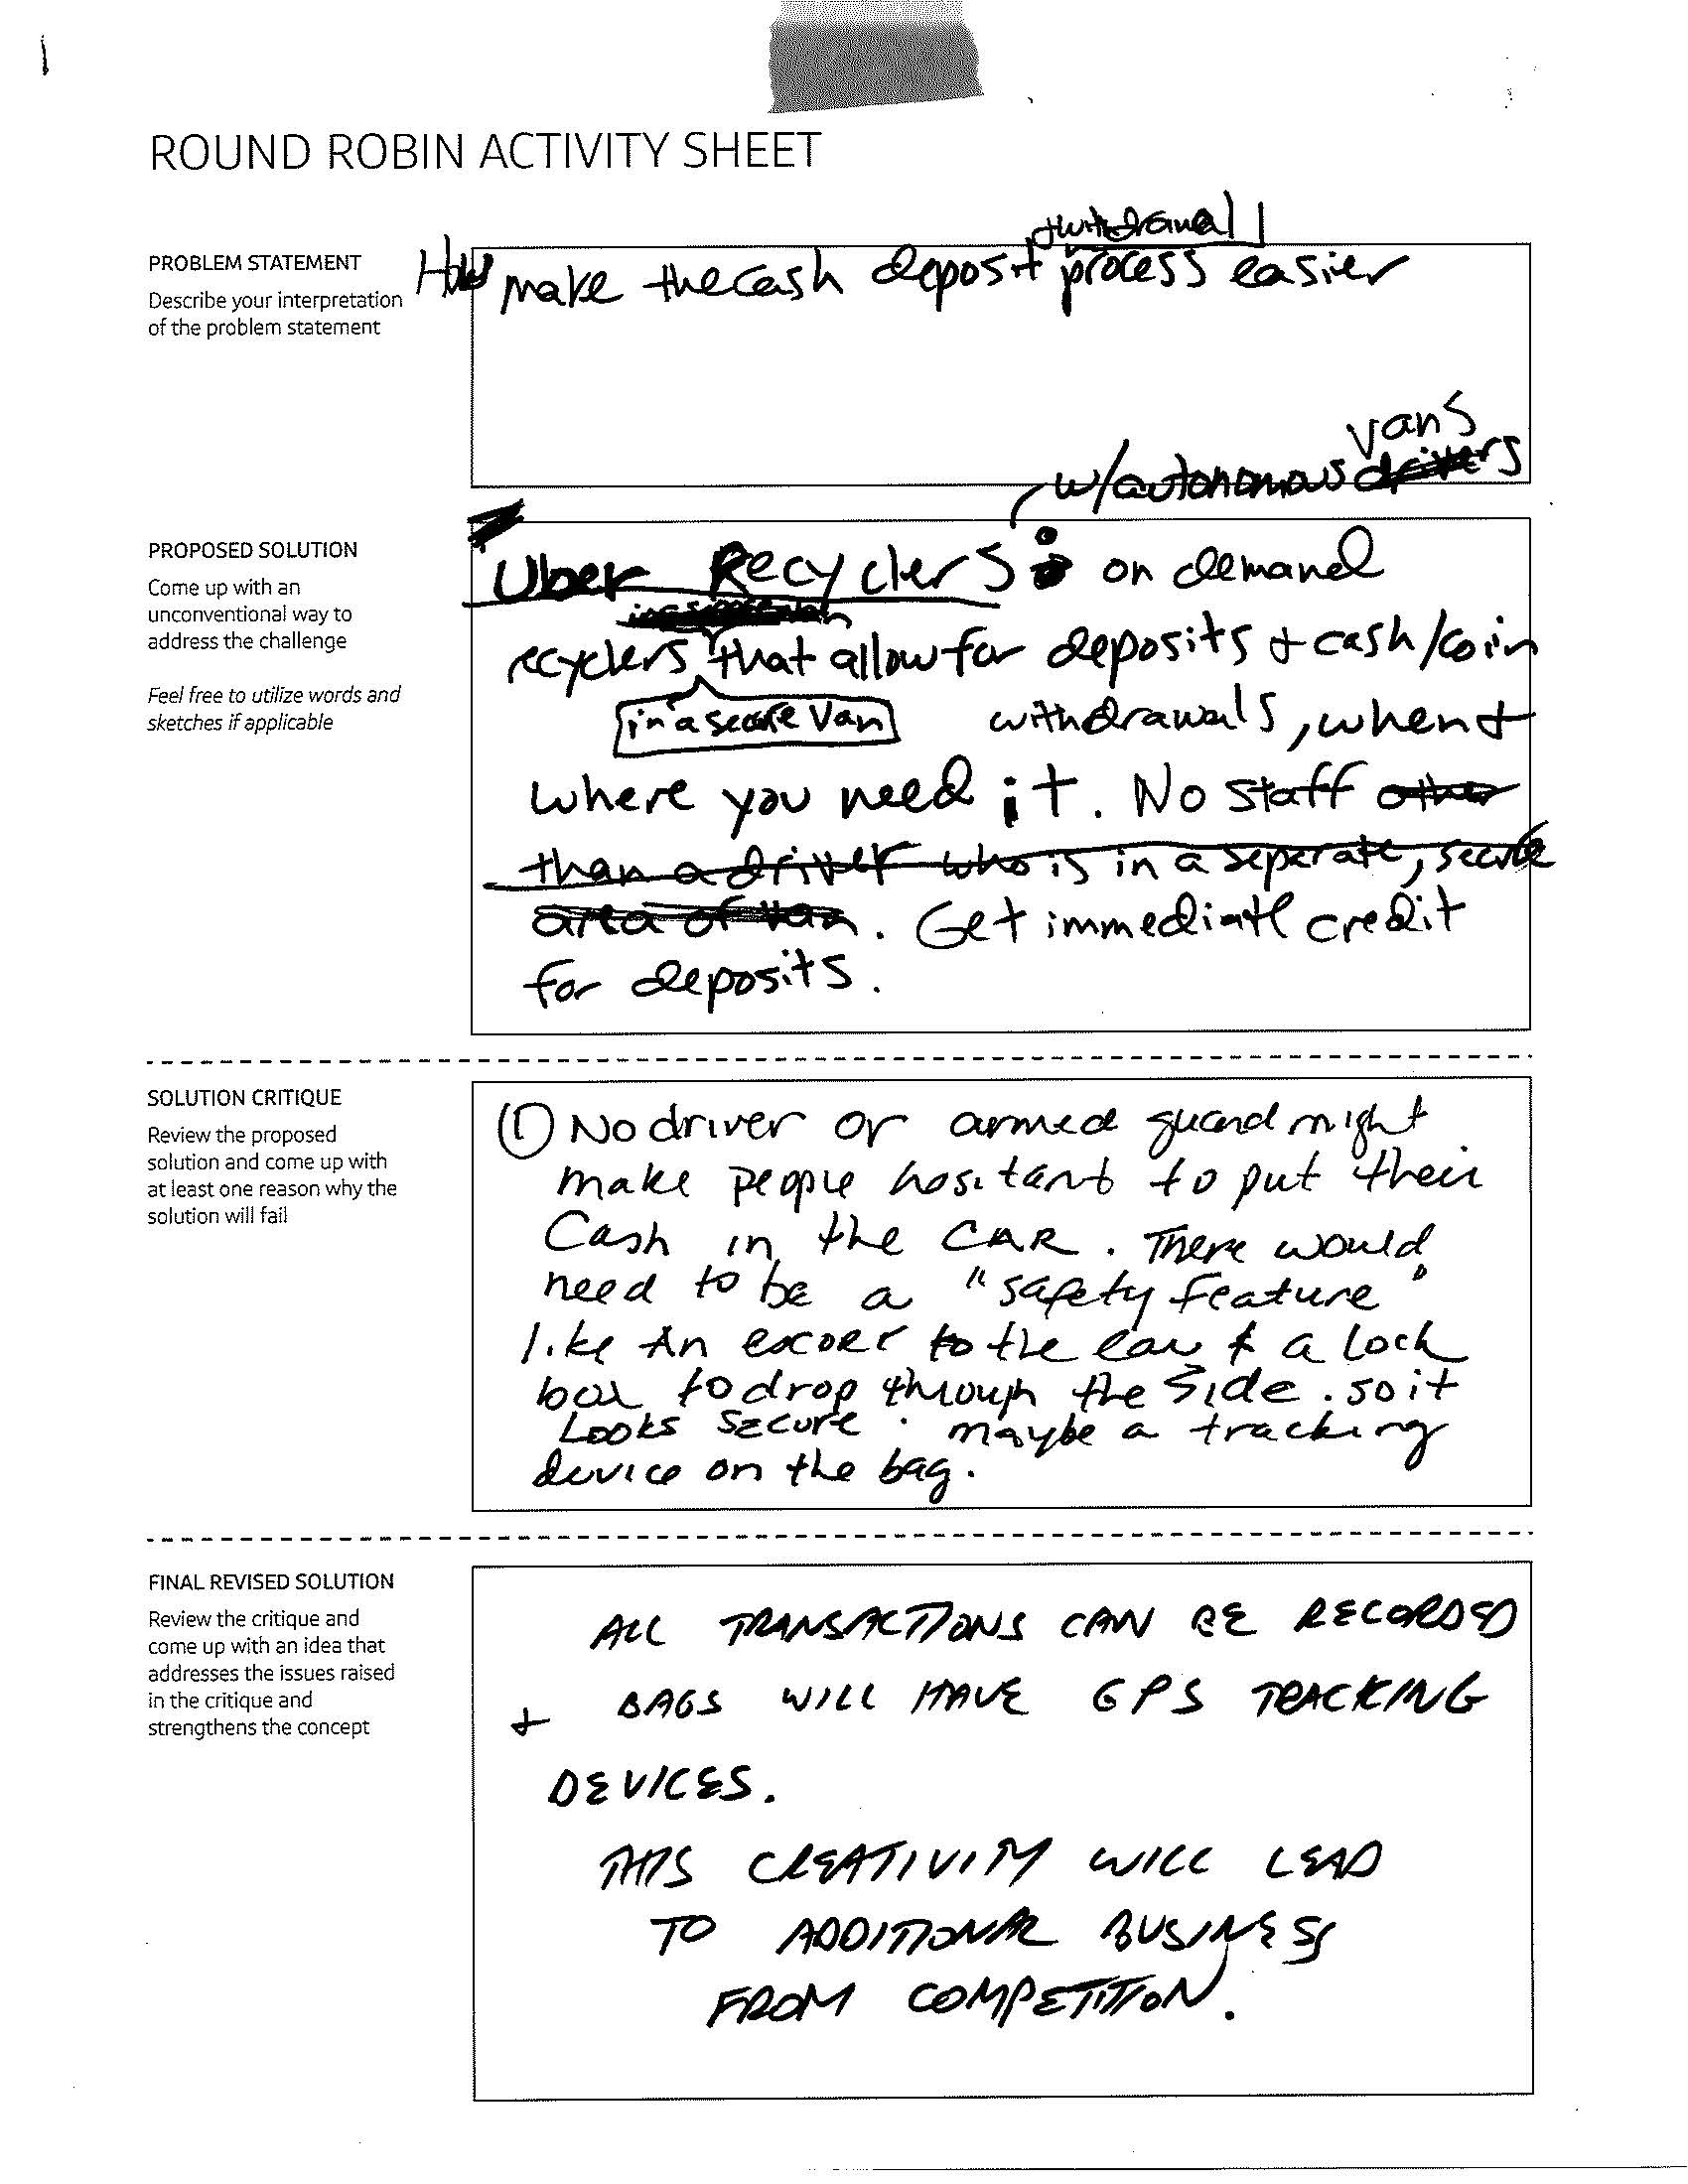 1
ROUND ROBIN ACTIVITY SHEET
PROBLEM STATEMENT
Describe your interpretation
of the problem statement
+withdrawal
How make the cash deposit process easier
PROPOSED SOLUTION
Come up with an
unconventional way to
address the challenge
Feel free to utilize words and
sketches if applicable
vans
w/autonomous drivers
Uber Recyclers: on demand
recyclers that allow for deposits + cash/coin
in a secure van
withdrawals, when +
where you need it. No staff other
than a driver who is in a seperate, secure
area of van. Get immediate credit
for deposits.
SOLUTION CRITIQUE
Review the proposed
solution and come up with
at least one reason why the
solution will fail
(1) No driver or armed guard might
make people hesitant to put their
Cash in the CAR. There would
need to be a "safety feature"
like An escort to the car & a lock
box to drop through the side. so it
Looks Secure. maybe a tracking
device on the bag.
FINAL REVISED SOLUTION
Review the critique and
come up with an idea that
addresses the issues raised
in the critique and
strengthens the concept
ALL TRANSACTIONS CAN BE RECORDED
+ BAGS WILL HAVE GPS TRACKING
DEVICES.
THIS CREATIVITY WILL LEAD
TO ADDITIONAL BUSINESS
FROM COMPETITION.